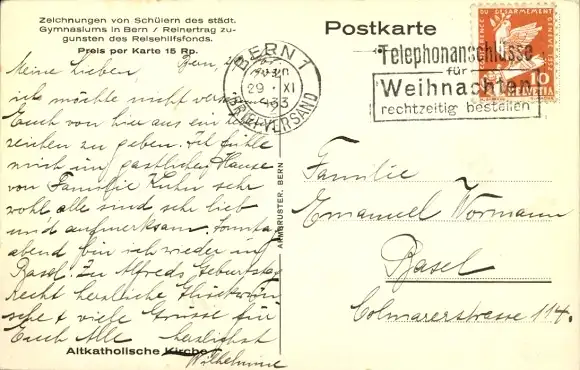 Zeichnungen von Schülern des städt.
Gymnasiums in Bern / Reinertrag zu-
gunsten des Reisehilfsfonds.
Preis per Karte 15 Rp.
Meine Lieben, Bern,
ich möchte nicht
Euch von hier aus ein
zeichen zu geben. Ich fühle
mich im gastlichen Hause
von Familie Kuhn sehr
wohl, alle sind sehr lieb
und aufmerksam. Sonntag
abend bin ich wieder in
Basel. Zu Alfreds Geburtstag
recht herzliche Glückwün
sche & viele Grüsse für
Euch Alle herzlichst
Wilhelmine
Altkatholische Kirche
ARMBRUSTER, BERN
Postkarte
BERN 1
29. XI
BRIEFVERSAND
Telephonanschlüsse
für
Weihnachten
rechtzeitig bestellen
CONFERENCE DU DESARMEMENT GENEVE 1932
10
HELVETIA
Familie
Emanuel Wormann
Basel
Colmarerstrasse 114.